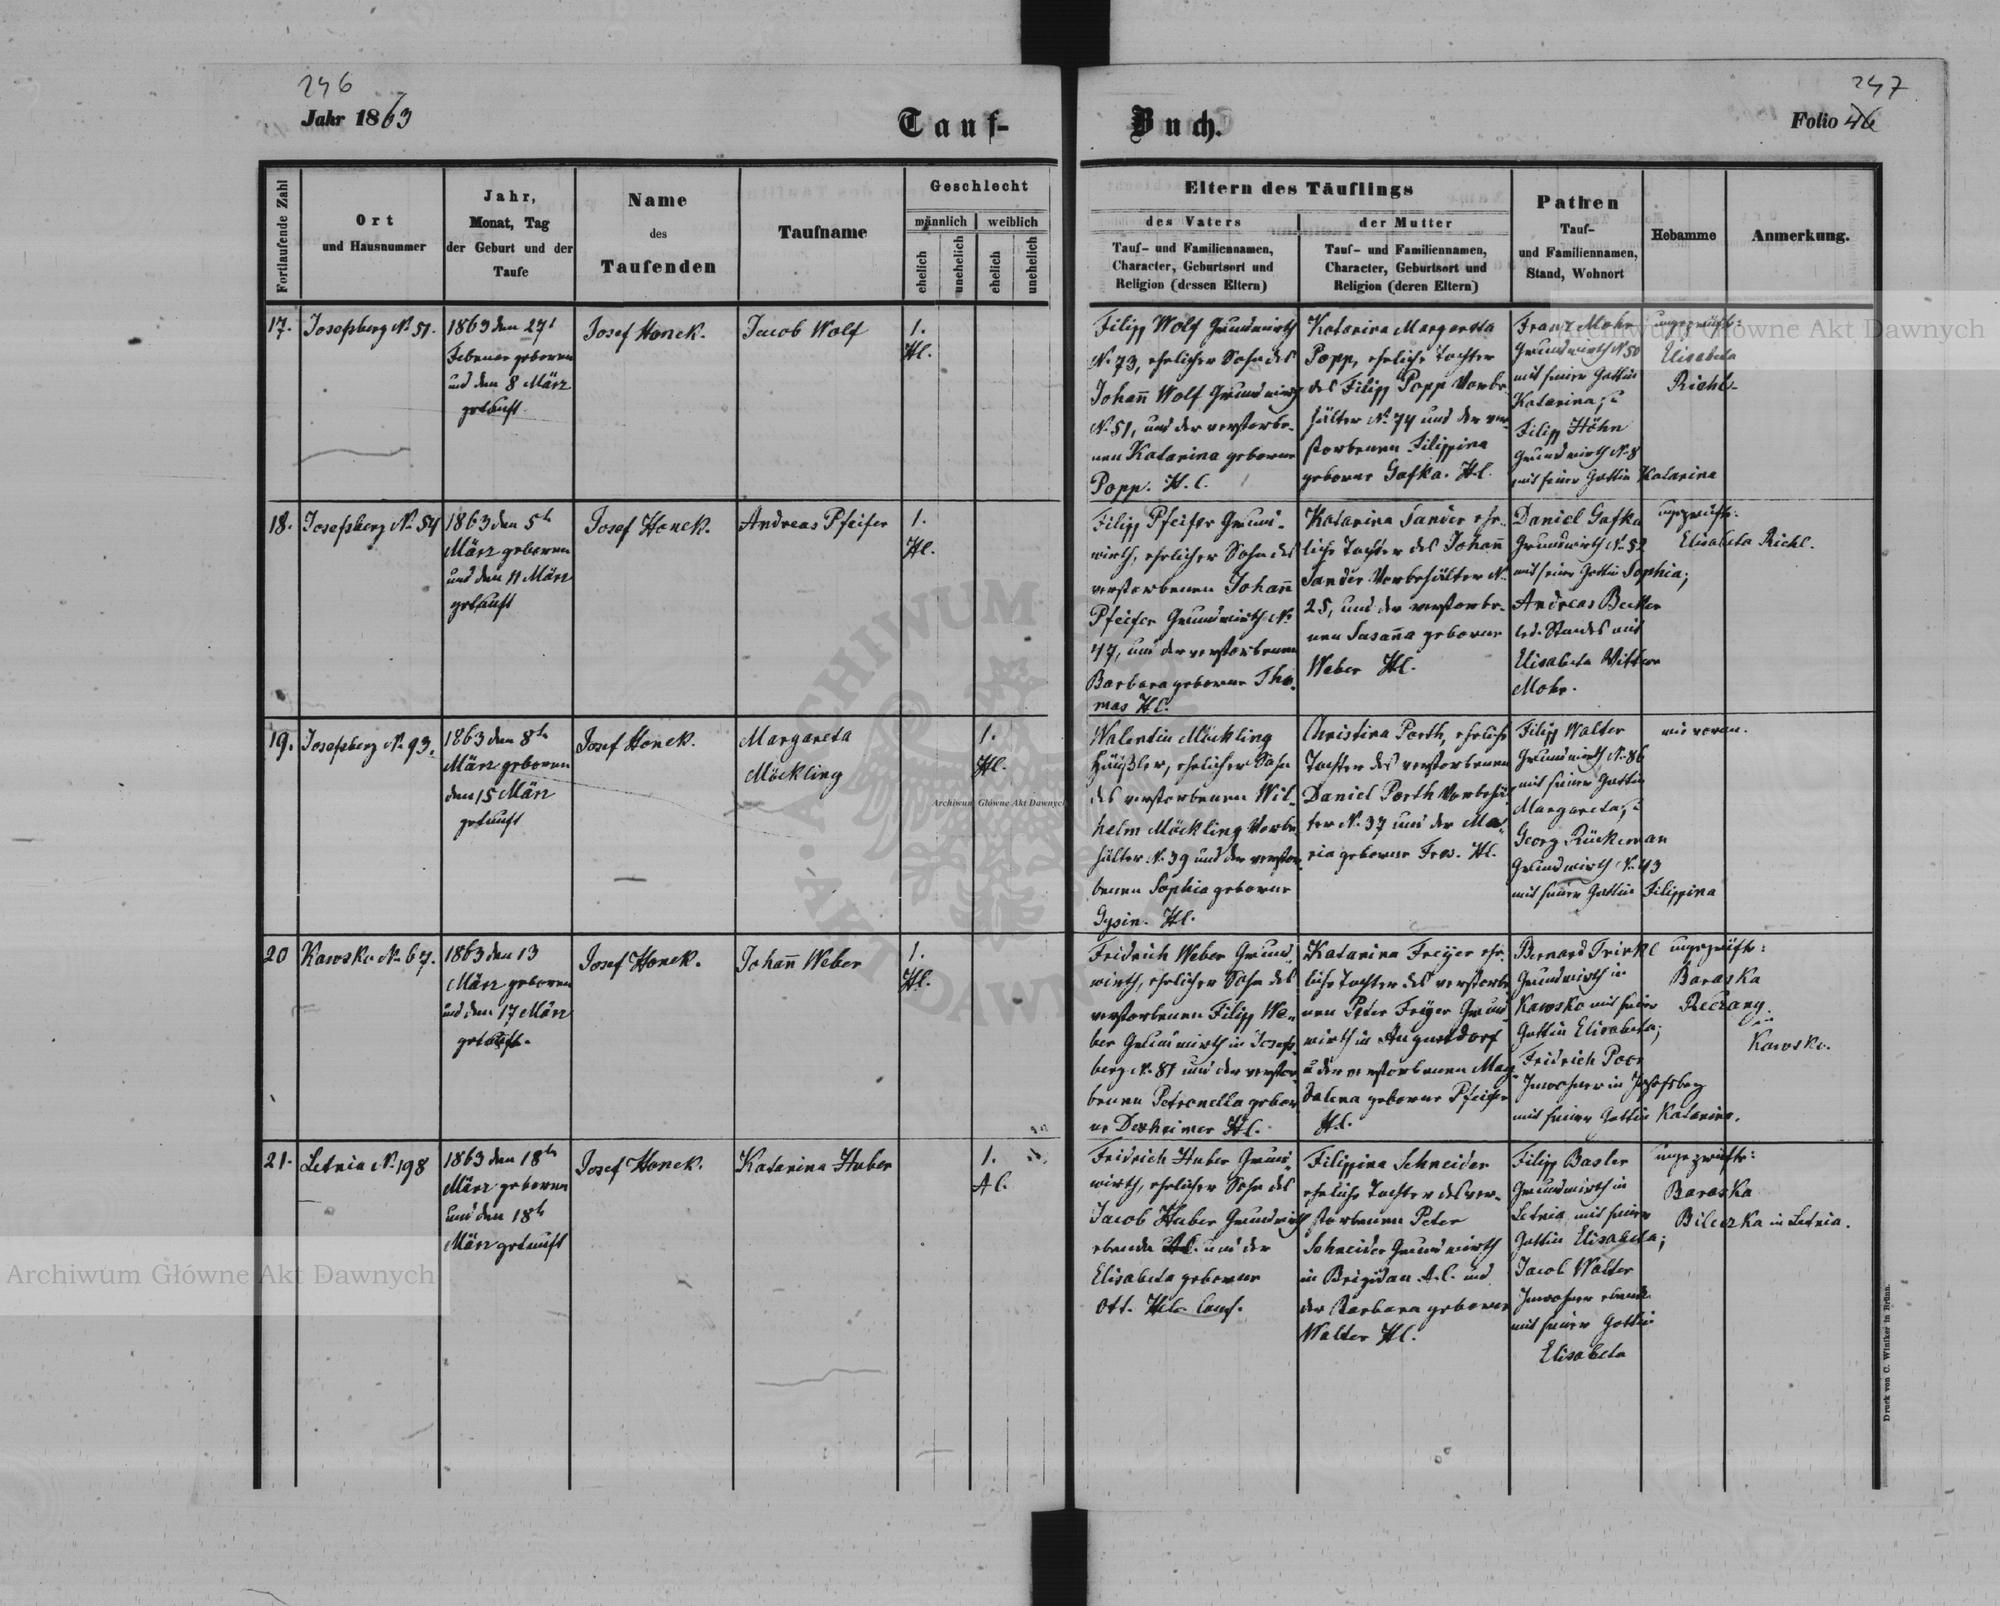 246
247
Jahr 1863
Tauf-
Buch.
Folio 46
Fortlaufende Zahl
Ort
und Hausnummer
Jahr,
Monat, Tag
der Geburt und der
Taufe
Name
des
Taufenden
Taufname
Geschlecht
männlich
weiblich
ehelich
unehelich
ehelich
unehelich
Eltern des Täuflings
des Vaters
Tauf- und Familiennamen,
Character, Geburtsort und
Religion (dessen Eltern)
der Mutter
Tauf- und Familiennamen,
Character, Geburtsort und
Religion (deren Eltern)
Pathen
Tauf-
und Familiennamen,
Stand, Wohnort
Hebamme
Anmerkung.
17.
Josefsberg N. 51.
1863 den 27t
Februar geboren
und den 8 März
getauft.
Josef Honek.
Jacob Wolf
1.
Hl.
Filipp Wolf Grundwirth
N. 73, ehelicher Sohn des
Johann̄ Wolf Grundwirth
N. 51, und der verstorbe-
nen Katarina geborne
Popp. H.C.
Katarina Margaretta
Popp, eheliche Tochter
des Filipp Popp Vorbe-
hälter N. 74 und der ver-
storbenen Filippina
geborne Gafka. Hl.
Franz Mohr
Grundwirth N. 50
mit seiner Gattin
Katarina; u.
Filipp Höhn
Grundwirth N. 8
mit seiner Gattin Katarina
ungeprüfte:
Elisabeta
Richl.
18.
Josefsberg N. 54
1863 den 5th
März geboren
und den 11 März
getauft
Josef Honek.
Andreas Pfeifer
1.
Hl.
Filipp Pfeifer Grund-
wirth, ehelicher Sohn des
verstorbenen Johann̄
Pfeifer Grundwirth N.
47, und der verstorbenen
Barbara geborne Tho-
mas Hl.
Katarina Sander ehe-
liche Tochter des Johann̄
Sander Vorbehälter N.
25, und der verstorbe-
nen Susan̄a geborne
Weber Hl.
Daniel Gafka
Grundwirth N. 52
mit seiner Gattin Sophia;
Andreas Becker
led. Standes mit
Elisabeta Wittwe
Mohr.
ungeprüfte:
Elisabeta Richl.
19.
Josefsberg N. 93.
1863 den 8th
März geboren
den 15 März
getauft
Josef Honek.
Margareta
Möckling
1.
Hl.
Walentin Möckling
Häusler, ehelicher Sohn
des verstorbenen Wil-
helm Möckling Vorbe-
hälter N. 39 und der verstor-
benen Sophia geborne
Gysin. Hl.
Christina Porth, eheliche
Tochter des verstorbenen
Daniel Porth Vorbehäl-
ter N. 37 und der Ma-
ria geborne Hl.
Filipp Walter
Grundwirth N. 86
mit seiner Gattin
Margareta; u.
Georg Rückeman
Grundwirth N. 43
mit seiner Gattin Filippina
wie voran.
20
Kawsko N. 67.
1863 den 13
März geboren
und den 17 März
getauft.
Josef Honek.
Johann̄ Weber
1.
Hl.
Fridrich Weber Grund-
wirth, ehelicher Sohn des
verstorbenen Filipp We-
ber Grundwirth in Josefs-
berg N. 81 und der verstor-
benen Petronella gebor-
ne Dexheimer Hl.
Katarina Freyer ehe-
liche Tochter des verstorbe-
nen Peter Freyer Grund-
wirth in Augustdorf
u der verstorbenen Mag-
dalena geborne Pfeifer
Hl.
Bernard Trinkl
Grundwirth in
Kawsko mit seiner
Gattin Elisabeta;
Fridrich Poor
Inwohner in Josefsberg
mit seiner Gattin Katarina.
ungeprüfte:
Baraska
in
Kawsko.
21.
Letnia N. 198
1863 den 18th
März geboren
und den 18th
März getauft
Josef Honek.
Katarina Huber
1.
A C.
Fridrich Huber Grund-
wirth, ehelicher Sohn des
Jacob Huber Grundwirth
ebenda und der
Elisabeta geborne
Ott. Hl. Conf.
Filippina Schneider
eheliche Tochter des ver-
storbenen Peter
Schneider Grundwirth
in Brigidau A.C. und
der Barbara geborne
Walter Hl.
Filipp Basler
Grundwirth in
Letnia mit seiner
Gattin Elisabeta;
Jacob Walter
Inwohner ebenda
mit seiner Gattin
Elisabeta
ungeprüfte:
Baraska
Bileczka in Letnia.
Druck von C. Winiker in Brünn.
Archiwum Główne Akt Dawnych
Archiwum Główne Akt Dawnych
Archiwum Główne Akt Dawnych